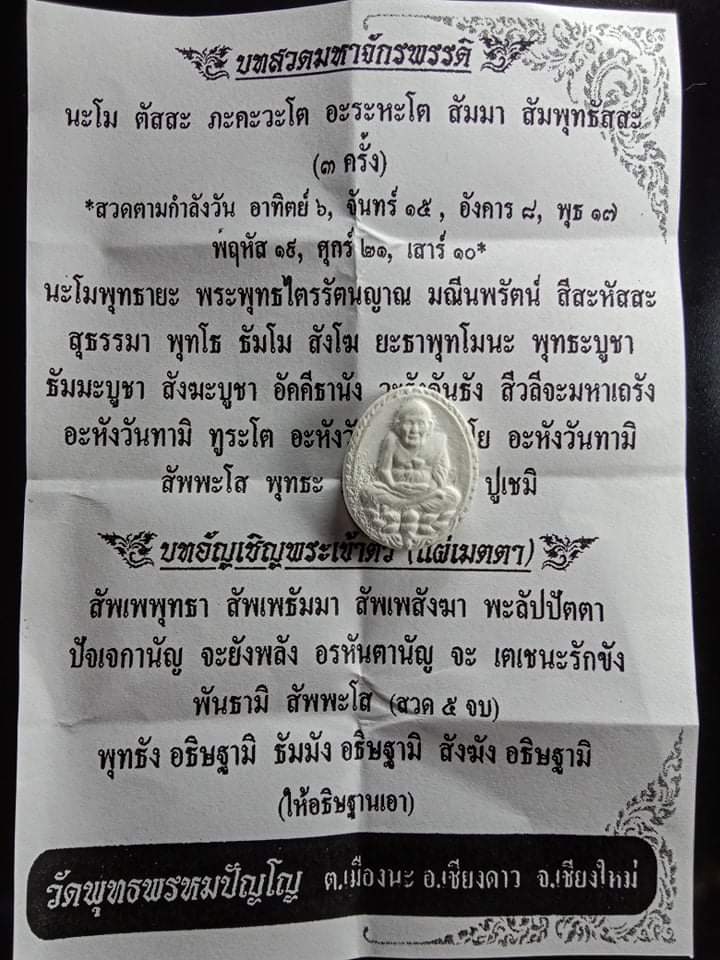 บทสวดมหาจักรพรรดิ
นะโม ตัสสะ ภะคะวะโต อะระหะโต สัมมา สัมพุทธัสสะ
(๓ ครั้ง)
*สวดตามกำลังวัน อาทิตย์ ๖, จันทร์ ๑๕ , อังคาร ๘, พุธ ๑๗
พฤหัส ๑๙, ศุกร์ ๒๑, เสาร์ ๑๐*
นะโมพุทธายะ พระพุทธไตรรัตนญาณ มณีนพรัตน์ สีสะหัสสะ
สุธรรมา พุทโธ ธัมโม สังโฆ ยะธาพุทโมนะ พุทธะบูชา
ธัมมะบูชา สังฆะบูชา อัคคีธานัง สีวลีจะมหาเถรัง
อะหังวันทามิ ทูระโต อะหังวั โย อะหังวันทามิ
สัพพะโส พุทธะ ปูเชมิ
บทอัญเชิญพระเข้าตัว (แผ่เมตตา)
สัพเพพุทธา สัพเพธัมมา สัพเพสังฆา พะลัปปัตตา
ปัจเจกานัญ จะยังพลัง อรหันตานัญ จะ เตเชนะรักขัง
พันธามิ สัพพะโส (สวด ๕ จบ)
พุทธัง อธิษฐามิ ธัมมัง อธิษฐามิ สังฆัง อธิษฐามิ
(ให้อธิษฐานเอา)
วัดพุทธพรหมปัญโญ ต.เมืองนะ อ.เชียงดาว จ.เชียงใหม่